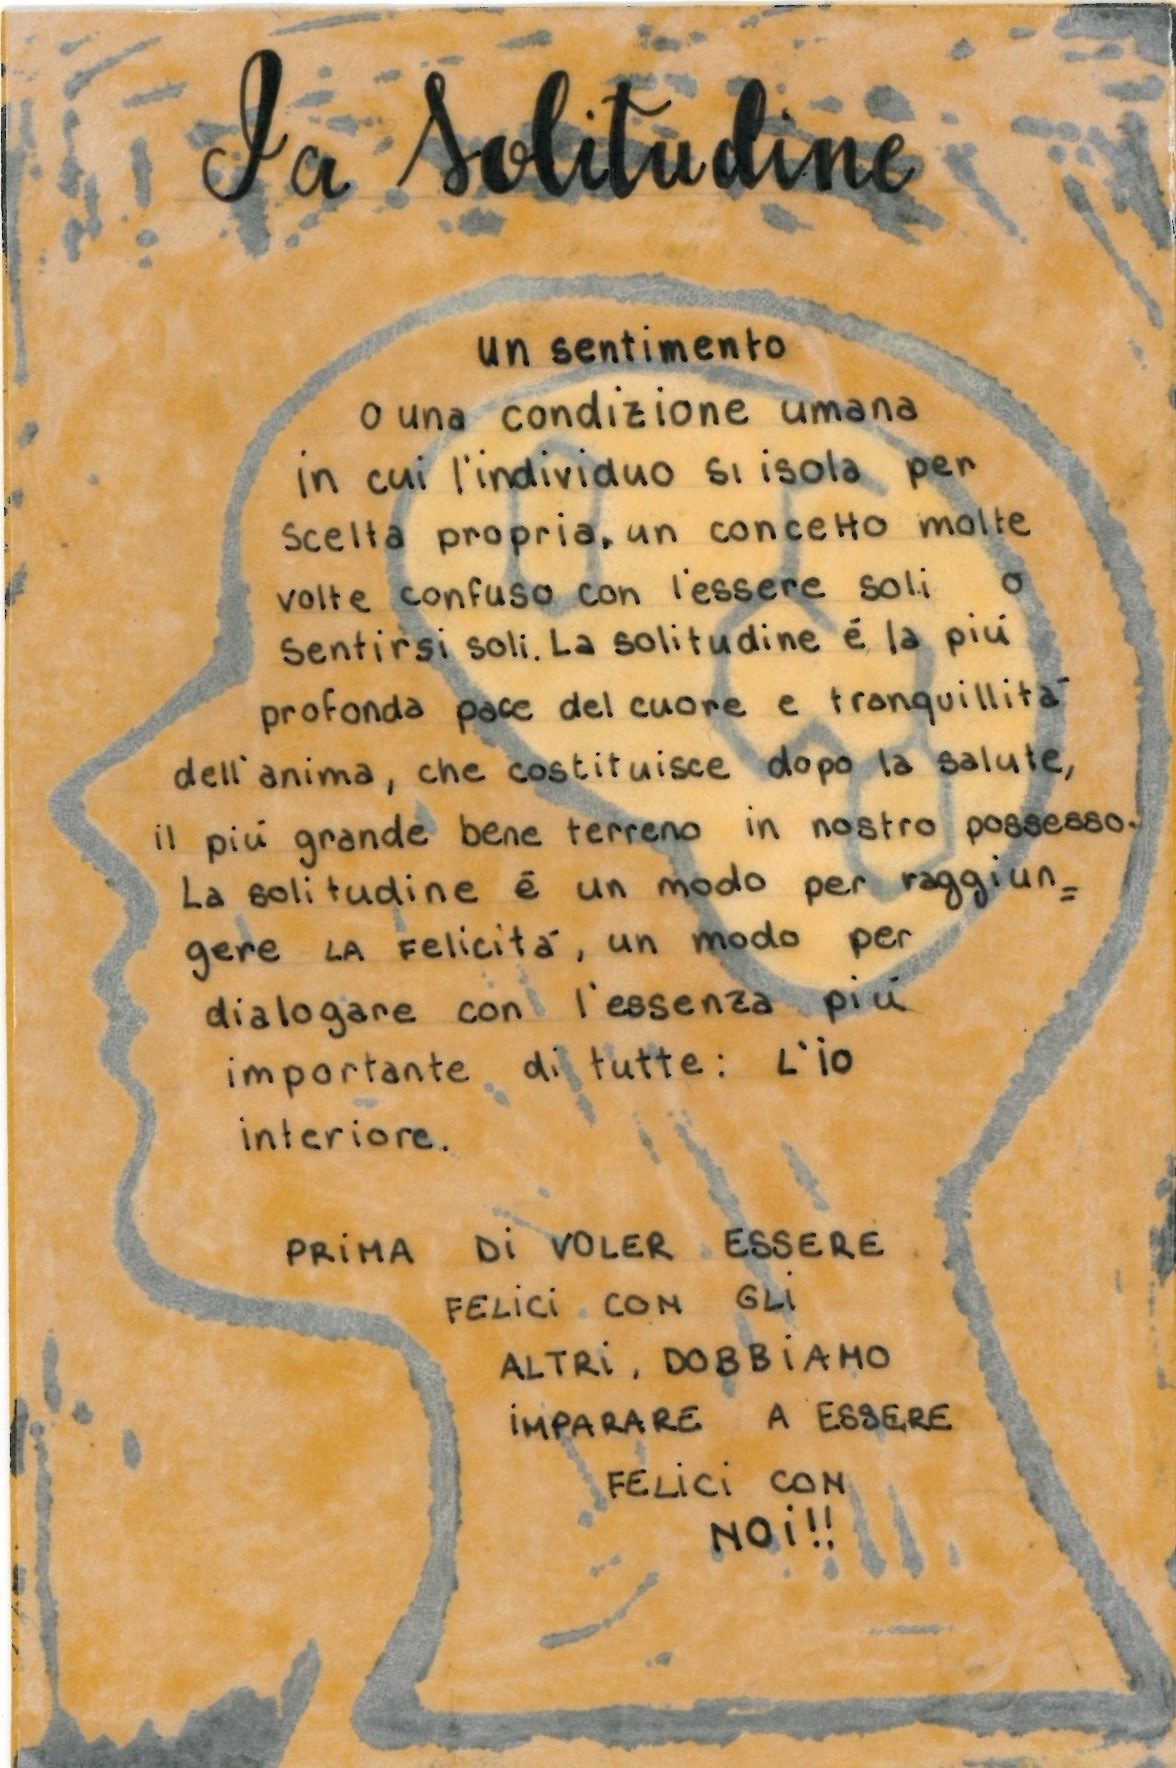 La Solitudine
un sentimento
o una condizione umana
in cui l'individuo si isola per
scelta propria, un concetto molte
volte confuso con l'essere soli o
sentirsi soli. La solitudine é la piú
profonda pace del cuore e tranquillitá
dell'anima, che costituisce dopo la salute,
il piú grande bene terreno in nostro possesso.
La solitudine é un modo per raggiun=
gere LA Felicitá, un modo per
dialogare con l'essenza piú
importante di tutte: L'io
interiore.
PRiMA Di VOLER ESSERE
FELiCi CON GLi
ALTRi, DOBBiAMO
iMPARARE A ESSERE
FELiCi CON
NOi!!